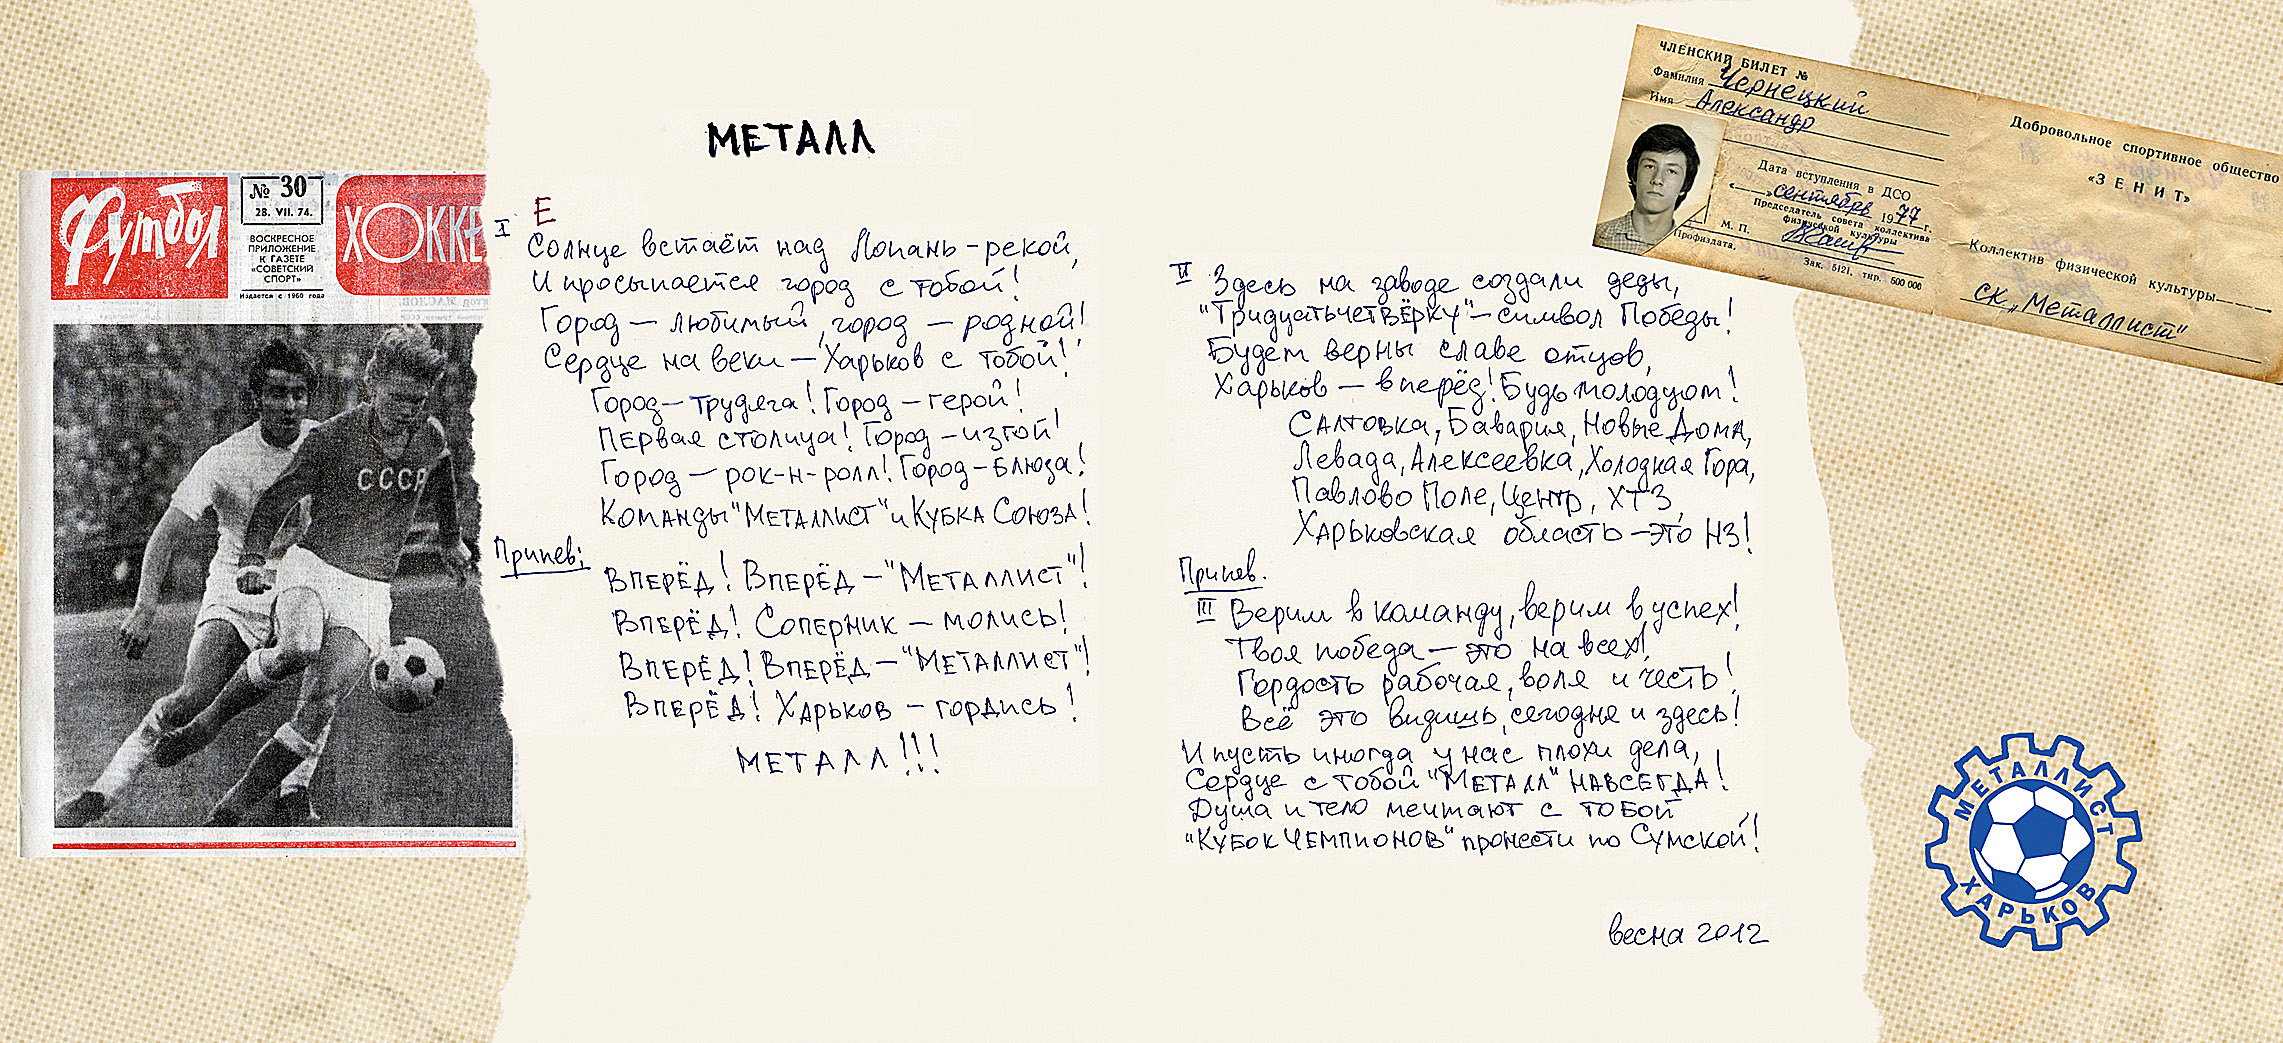 Футбол
№ 30
28. VII. 74.
ВОСКРЕСНОЕ
ПРИЛОЖЕНИЕ
К ГАЗЕТЕ
«СОВЕТСКИЙ
СПОРТ»
Издается с 1960 года
ХОККЕ
СССР
МЕТАЛЛ
E
I Солнце встаёт над Лопань-рекой,
И просыпается город с тобой!
Город — любимый, город — родной!
Сердце на веки — Харьков с тобой!
Город — трудяга! Город — герой!
Первая столица! Город — изгой!
Город — рок-н-ролл! Город — блюза!
Команды "Металлист" и Кубка Союза!
Припев:
Вперёд! Вперёд — "Металлист"!
Вперёд! Соперник — молись!
Вперёд! Вперёд — "Металлист"!
Вперёд! Харьков — гордись!
МЕТАЛЛ!!!
II Здесь на заводе создали деды,
"Тридцатьчетвёрку" — символ Победы!
Будем верны славе отцов,
Харьков — вперёд! Будь молодцом!
Салтовка, Бавария, Новые Дома,
Левада, Алексеевка, Холодная Гора,
Павлово Поле, Центр, ХТЗ,
Харьковская область — это НЗ!
Припев.
III Верим в команду, верим в успех!
Твоя победа — это на всех!
Гордость рабочая, воля и честь!
Всё это видишь, сегодня и здесь!
И пусть иногда у нас плохи дела,
Сердце с тобой "Металл" навсегда!
Душа и тело мечтают с тобой
"Кубок Чемпионов" пронести по Сумской!
весна 2012
ЧЛЕНСКИЙ БИЛЕТ №
Фамилия Чернецкий
Имя Александр
Дата вступления в ДСО
«——» сентябрь 1977 г.
Председатель совета коллектива
физической культуры
М. П.
Профиздата.
Зак. 5121, тир. 500 000
Добровольное спортивное общество
«ЗЕНИТ»
Коллектив физической культуры
СК „Металлист"
МЕТАЛЛИСТ
ХАРЬКОВ